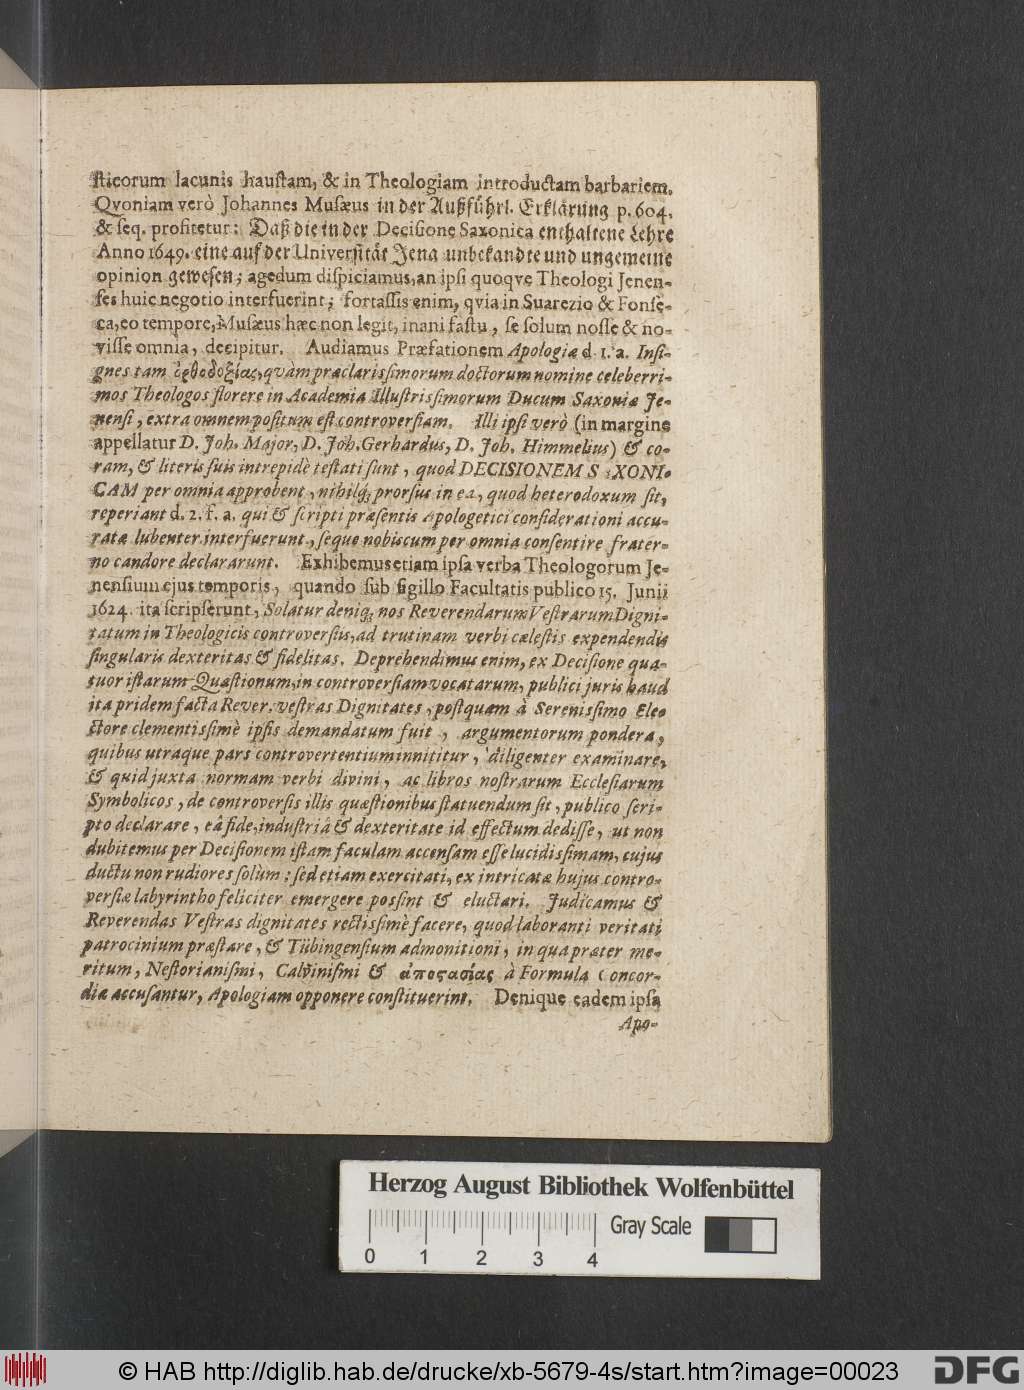 sticorum lacunis haustam, & in Theologiam introductam barbariem.
Qvoniam verò Johannes Musæus in der Außführl. Erklärung p. 604.
& seq. profitetur: Daß die in der Decisione Saxonica enthaltene Lehre
Anno 1649. eine auf der Universität Jena unbekandte und ungemeine
opinion gewesen; agedum dispiciamus, an ipsi quoqve Theologi Jenen-
ses huic negotio interfuerint; fortassis enim, qvia in Suarezio & Fonse-
ca, eo tempore, Musæus hæc non legit, inani fastu, se solum nosse & no-
visse omnia, decipitur. Audiamus Præfationem Apologiæ d. 1. a. Insi-
gnes tam ὀρθοδοξίας, quàm præclarissimorum doctorum nomine celeberri-
mos Theologos florere in Academia Illustrissimorum Ducum Saxoniæ Je-
nensi, extra omnem positum est controversiam. Illi ipsi verò (in margine
appellatur D. Joh. Major, D. Joh. Gerhardus, D. Joh. Himmelius) & co-
ram, & literis suis intrepidè testati sunt, quod DECISIONEM SAXONI-
CAM per omnia approbent, nihilq; prorsus in ea, quod heterodoxum sit,
reperiant d. 2. f. a. qui & scripti præsentis Apologetici considerationi accu-
ratæ lubenter interfuerunt, seque nobiscum per omnia consentire frater-
no candore declararunt. Exhibemus etiam ipsa verba Theologorum Je-
nensium ejus temporis, quando sub sigillo Facultatis publico 15. Junii
1624. ita scripserunt, Solatur deniq; nos Reverendarum Vestrarum Digni-
tatum in Theologicis controversiis, ad trutinam verbi cælestis expendendis
singularis dexteritas & fidelitas. Deprehendimus enim, ex Decisione qua-
tuor istarum Quæstionum, in controversiam vocatarum, publici juris haud
ita pridem facta Rever. vestras Dignitates, postquam à Serenissimo Ele-
ctore clementissimè ipsis demandatum fuit, argumentorum pondera,
quibus utraque pars controvertentium innititur, diligenter examinare,
& quid juxta normam verbi divini, ac libros nostrarum Ecclesiarum
Symbolicos, de controversis illis quæstionibus statuendum sit, publico scri-
pto declarare, eâ fide, industriâ & dexteritate id effectum dedisse, ut non
dubitemus per Decisionem istam faculam accensam esse lucidissimam, cujus
ductu non rudiores solùm: sed etiam exercitati, ex intricatæ hujus contro-
versiæ labyrintho feliciter emergere possint & eluctari. Judicamus &
Reverendas Vestras dignitates rectissimè facere, quod laboranti veritati
patrocinium præstare, & Tübingensium admonitioni, in qua præter me-
ritum, Nestorianismi, Calvinismi & ἀποστασίας à Formula Concor-
diæ accusantur, Apologiam opponere constituerint. Denique eadem ipsa
Apo-
Herzog August Bibliothek Wolfenbüttel
Gray Scale
0 1 2 3 4
© HAB http://diglib.hab.de/drucke/xb-5679-4s/start.htm?image=00023
DFG